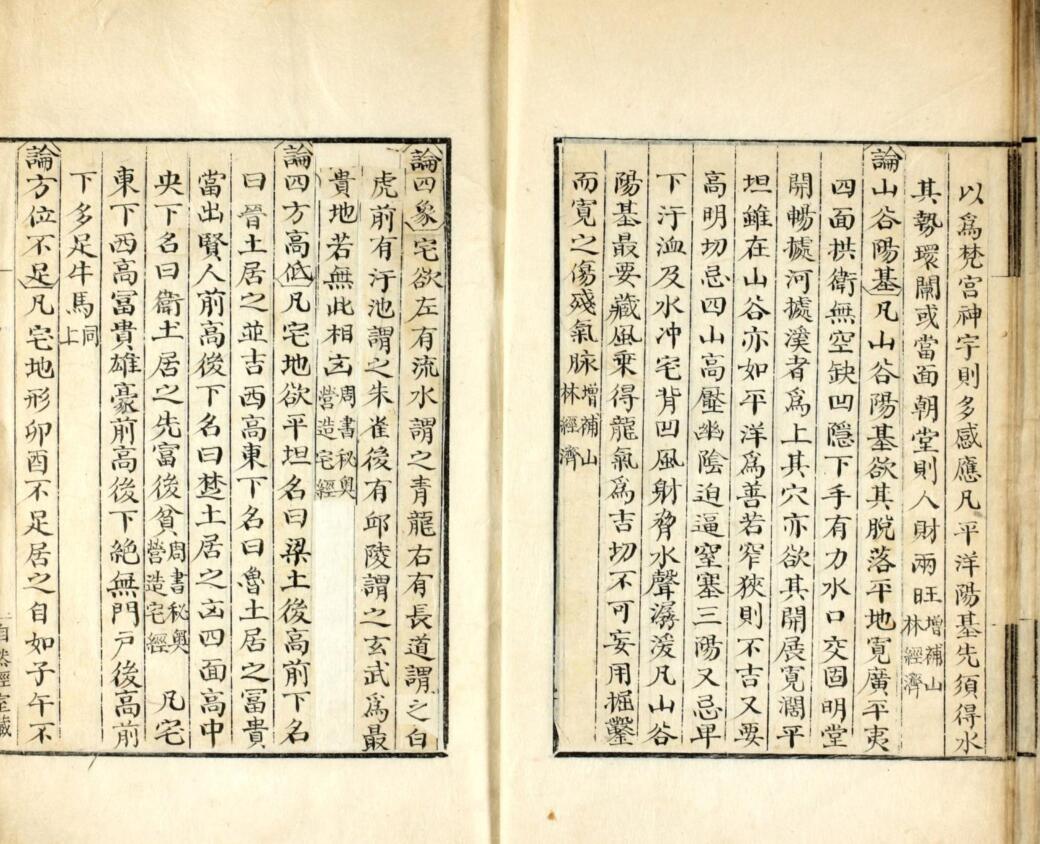 以爲梵宮神宇則多感應凡平洋陽基先須得水
其勢環關或當面朝堂則人財兩旺增補山林經濟
論山谷陽基凡山谷陽基欲其脫落平地寬廣平夷
四面拱衛無空缺凹隱下手有力水口交固明堂
開暢據河據溪者爲上其穴亦欲其開展寬濶平
坦雖在山谷亦如平洋爲善若窄狹則不吉又要
高明切忌四山高壓幽陰迫逼窒塞三陽又忌卑
下汙洫及水冲宅背凹風射脅水聲潺湲凡山谷
陽基最要藏風乗得龍氣爲吉切不可妄用掘鑿
而寬之傷殘氣脉增補山林經濟
論四象宅欲左有流水謂之青龍右有長道謂之白
虎前有汙池謂之朱雀後有邱陵謂之玄武爲最
貴地若無此相㓙周書秘奧營造宅經
論四方高低凡宅地欲平坦名曰梁土後高前下名
曰晉土居之並吉西高東下名曰魯土居之冨貴
當出賢人前高後下名曰楚土居之㓙四面高中
央下名曰衛土居之先富後貧周書秘奧營造宅經 凡宅
東下西高冨貴雄豪前高後下絶無門戶後高前
下多足牛馬同上
論方位不足凡宅地形卯酉不足居之自如子午不
自然經室藏